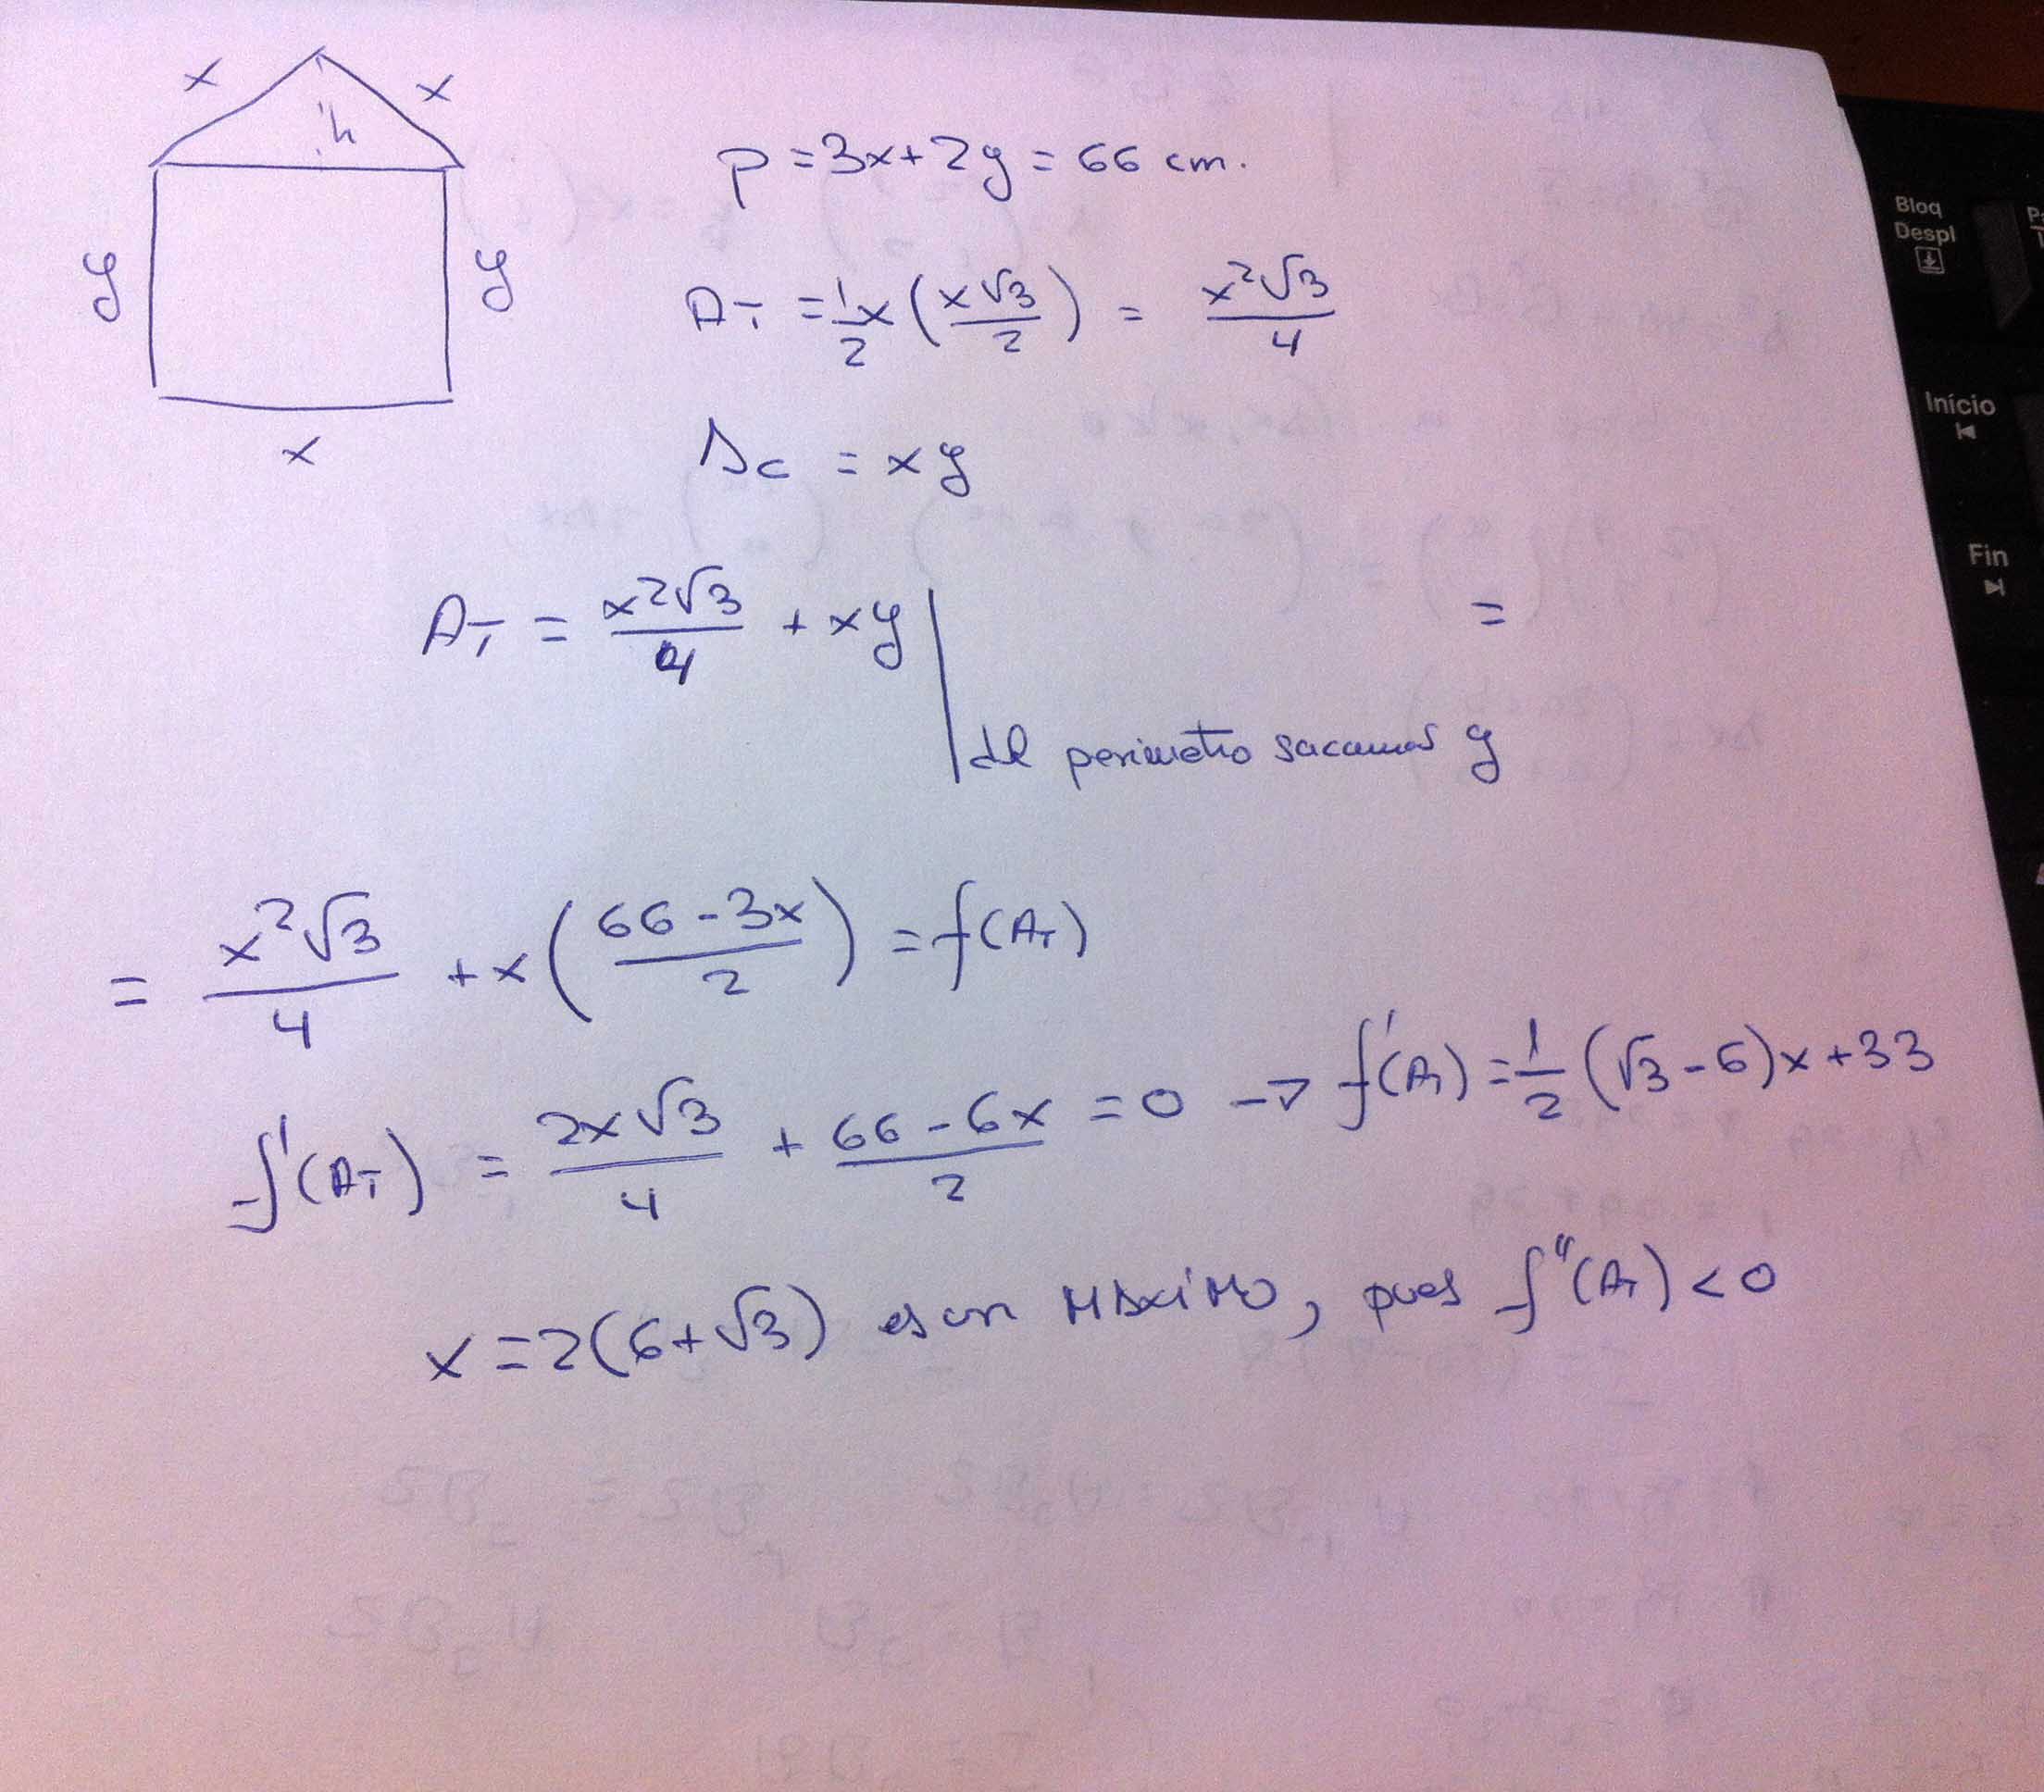 x x
h
y y
x
p = 3x + 2y = 66 cm.
A_T = 1/2 x (x√3/2) = x²√3/4
A_C = xy
A_T = x²√3/4 + xy | =
del perimetro sacamos y
= x²√3/4 + x((66-3x)/2) = f(A_T)
f'(A_T) = 2x√3/4 + (66-6x)/2 = 0 → f'(A_T) = 1/2 (√3-6)x + 33
x = 2(6+√3) es un MÁXIMO, pues f''(A_T) < 0
Bloq
Despl
Início
Fin